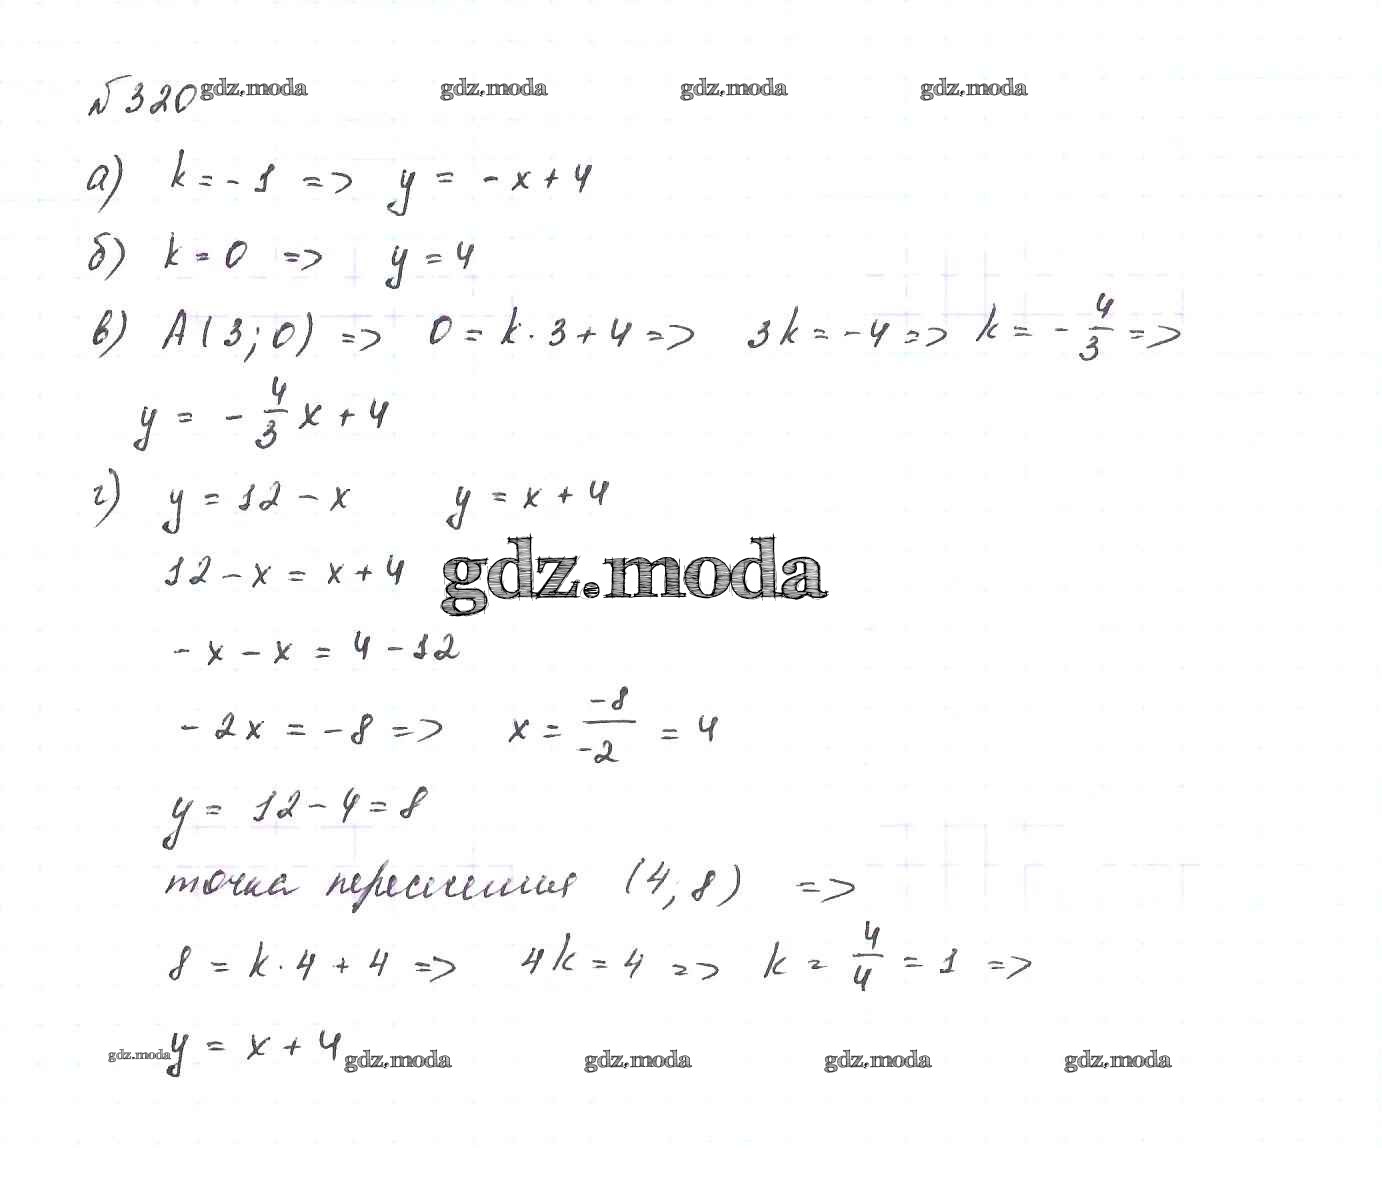 №320 gdz.moda gdz.moda gdz.moda gdz.moda
а) k = -1 => y = -x + 4
б) k = 0 => y = 4
в) A(3; 0) => 0 = k · 3 + 4 => 3k = -4 => k = -4/3 =>
y = -4/3 x + 4
г) y = 12 - x y = x + 4
12 - x = x + 4
gdz.moda
-x - x = 4 - 12
-2x = -8 => x = -8/-2 = 4
y = 12 - 4 = 8
точка пересечения (4, 8) =>
8 = k · 4 + 4 => 4k = 4 => k = 4/4 = 1 =>
y = x + 4
gdz.moda gdz.moda gdz.moda gdz.moda gdz.moda